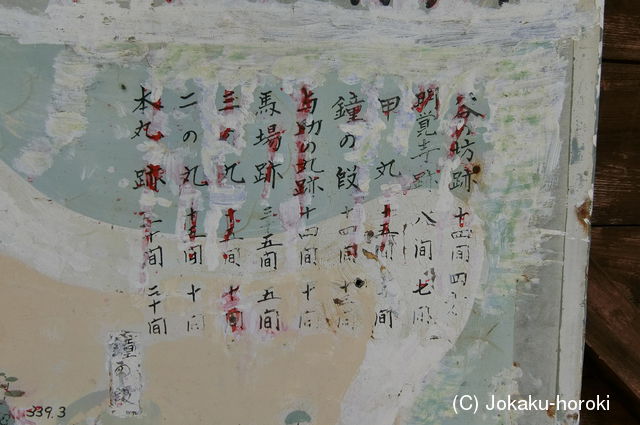 谷の坊跡 十四間 四
明覚寺跡 八間 七間
甲丸 十五間 間
鐘の段 十四間 十間
与助の丸跡 十四間 十間
馬場跡 三五間 五間
三の丸 十五間 十間
二の丸 十五間 十間
本丸跡 二十間 二十間
鐘の段
339.3
(C) Jokaku-horoki